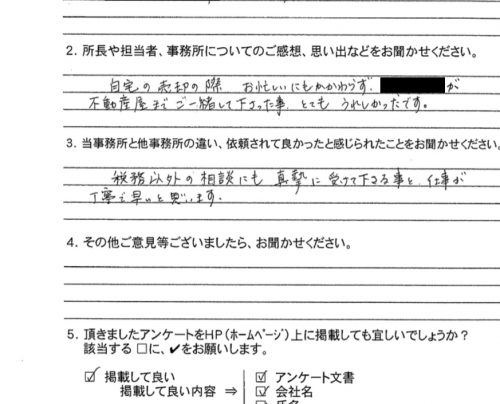 2. 所長や担当者、事務所についてのご感想、思い出などをお聞かせください。
自宅の売却の際 お忙しいにもかかわらず、 が
不動産屋までご一緒して下さった事 とても うれしかったです。
3. 当事務所と他事務所の違い、依頼されて良かったと感じられたことをお聞かせください。
税務以外の相談にも 真摯に受けて下さる事と 仕事が
丁寧で早いと思います。
4. その他ご意見等ございましたら、お聞かせください。
5. 頂きましたアンケートをHP(ホームページ)上に掲載しても宜しいでしょうか?
該当する □に、✔をお願いします。
☑ 掲載して良い ☑ アンケート文書
掲載して良い内容 ⇒ ☑ 会社名